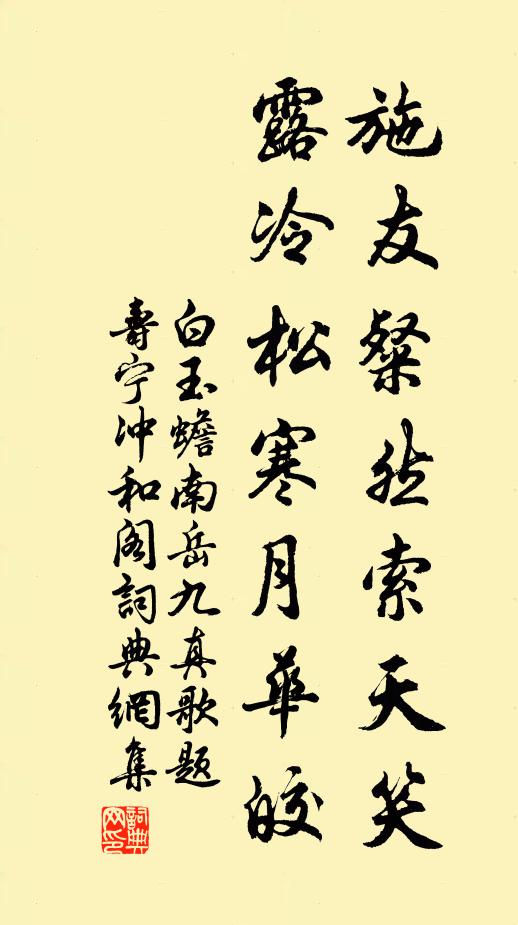 施友粲然索天笑
露冷松寒月華皎
白玉蟾南岳九真歌题
壽宁冲和阁詞典網集
詞典網印